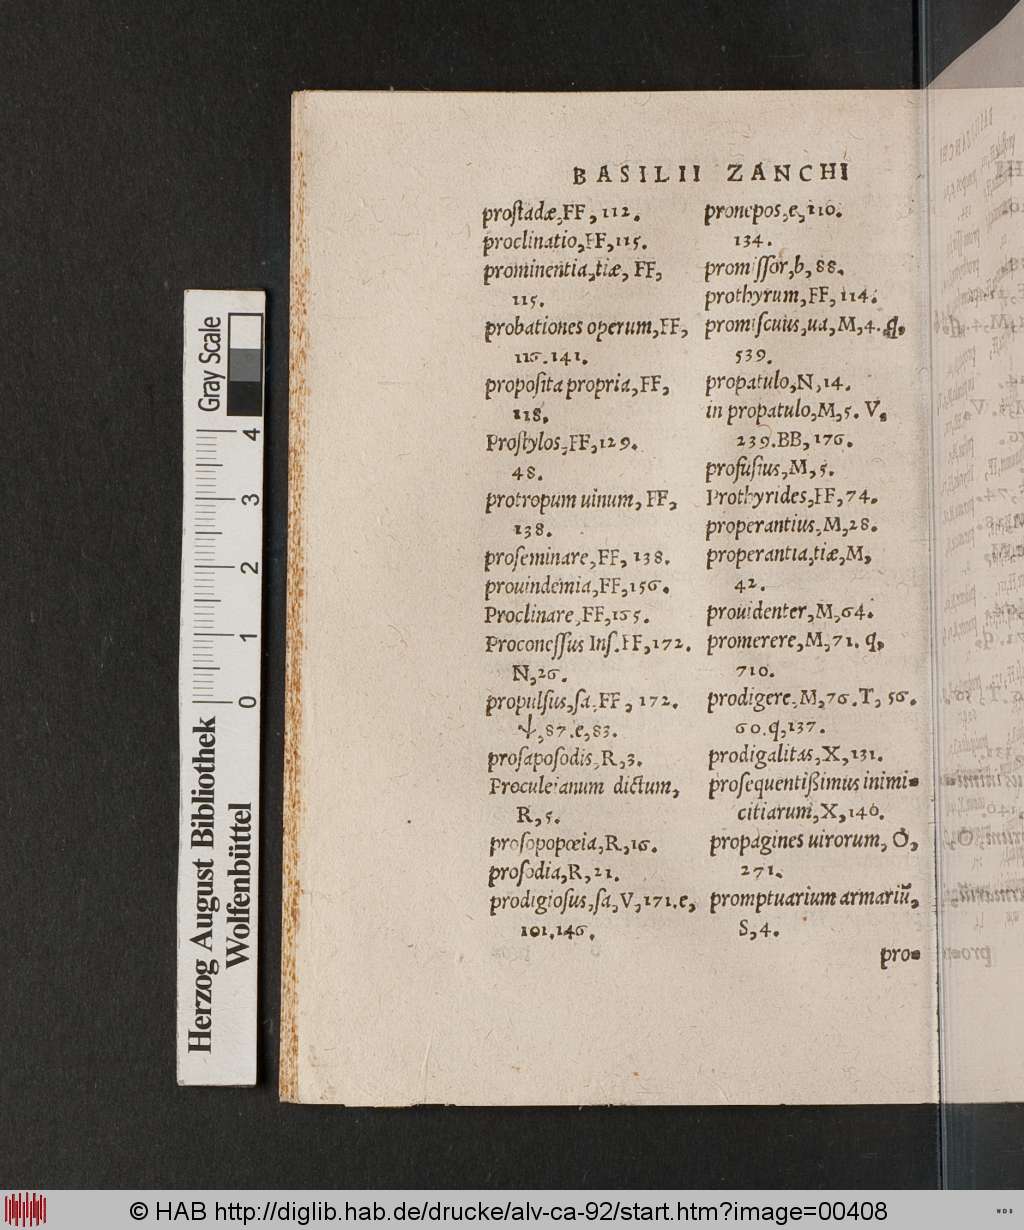 BASILII ZANCHI
prostadæ, FF, 112.
proclinatio, FF, 115.
prominentia, tiæ, FF,
115.
probationes operum, FF,
116.141.
proposita propria, FF,
118.
Prostylos, FF, 129.
48.
protropum uinum, FF,
138.
proseminare, FF, 138.
prouindemia, FF, 156.
Proclinare, FF, 165.
Proconessus Ins. FF, 172.
N, 26.
propulsus, sa, FF, 172.
ψ, 87. e, 83.
prosaposodis, R, 3.
Proculeianum dictum,
R, 5.
prosopopœia, R, 16.
prosodia, R, 21.
prodigiosus, sa, V, 171. e,
101.146.
pronepos, e, 110.
134.
promissor, b, 88.
prothyrum, FF, 114.
promiscuus, ua, M, 4. q,
539.
propatulo, N, 14.
in propatulo, M, 5. V,
239. BB, 176.
profusius, M, 5.
Prothyrides, FF, 74.
properantius, M, 28.
properantia, tiæ, M,
42.
prouidenter, M, 64.
promerere, M, 71. q,
710.
prodigere, M, 76. T, 56.
60. q, 137.
prodigalitas, X, 131.
prosequentißimus inimi-
citiarum, X, 140.
propagines uirorum, O,
271.
promptuarium armariũ,
S, 4.
pro-
Gray Scale
4
3
2
1
0
Herzog August Bibliothek
Wolfenbüttel
© HAB http://diglib.hab.de/drucke/alv-ca-92/start.htm?image=00408